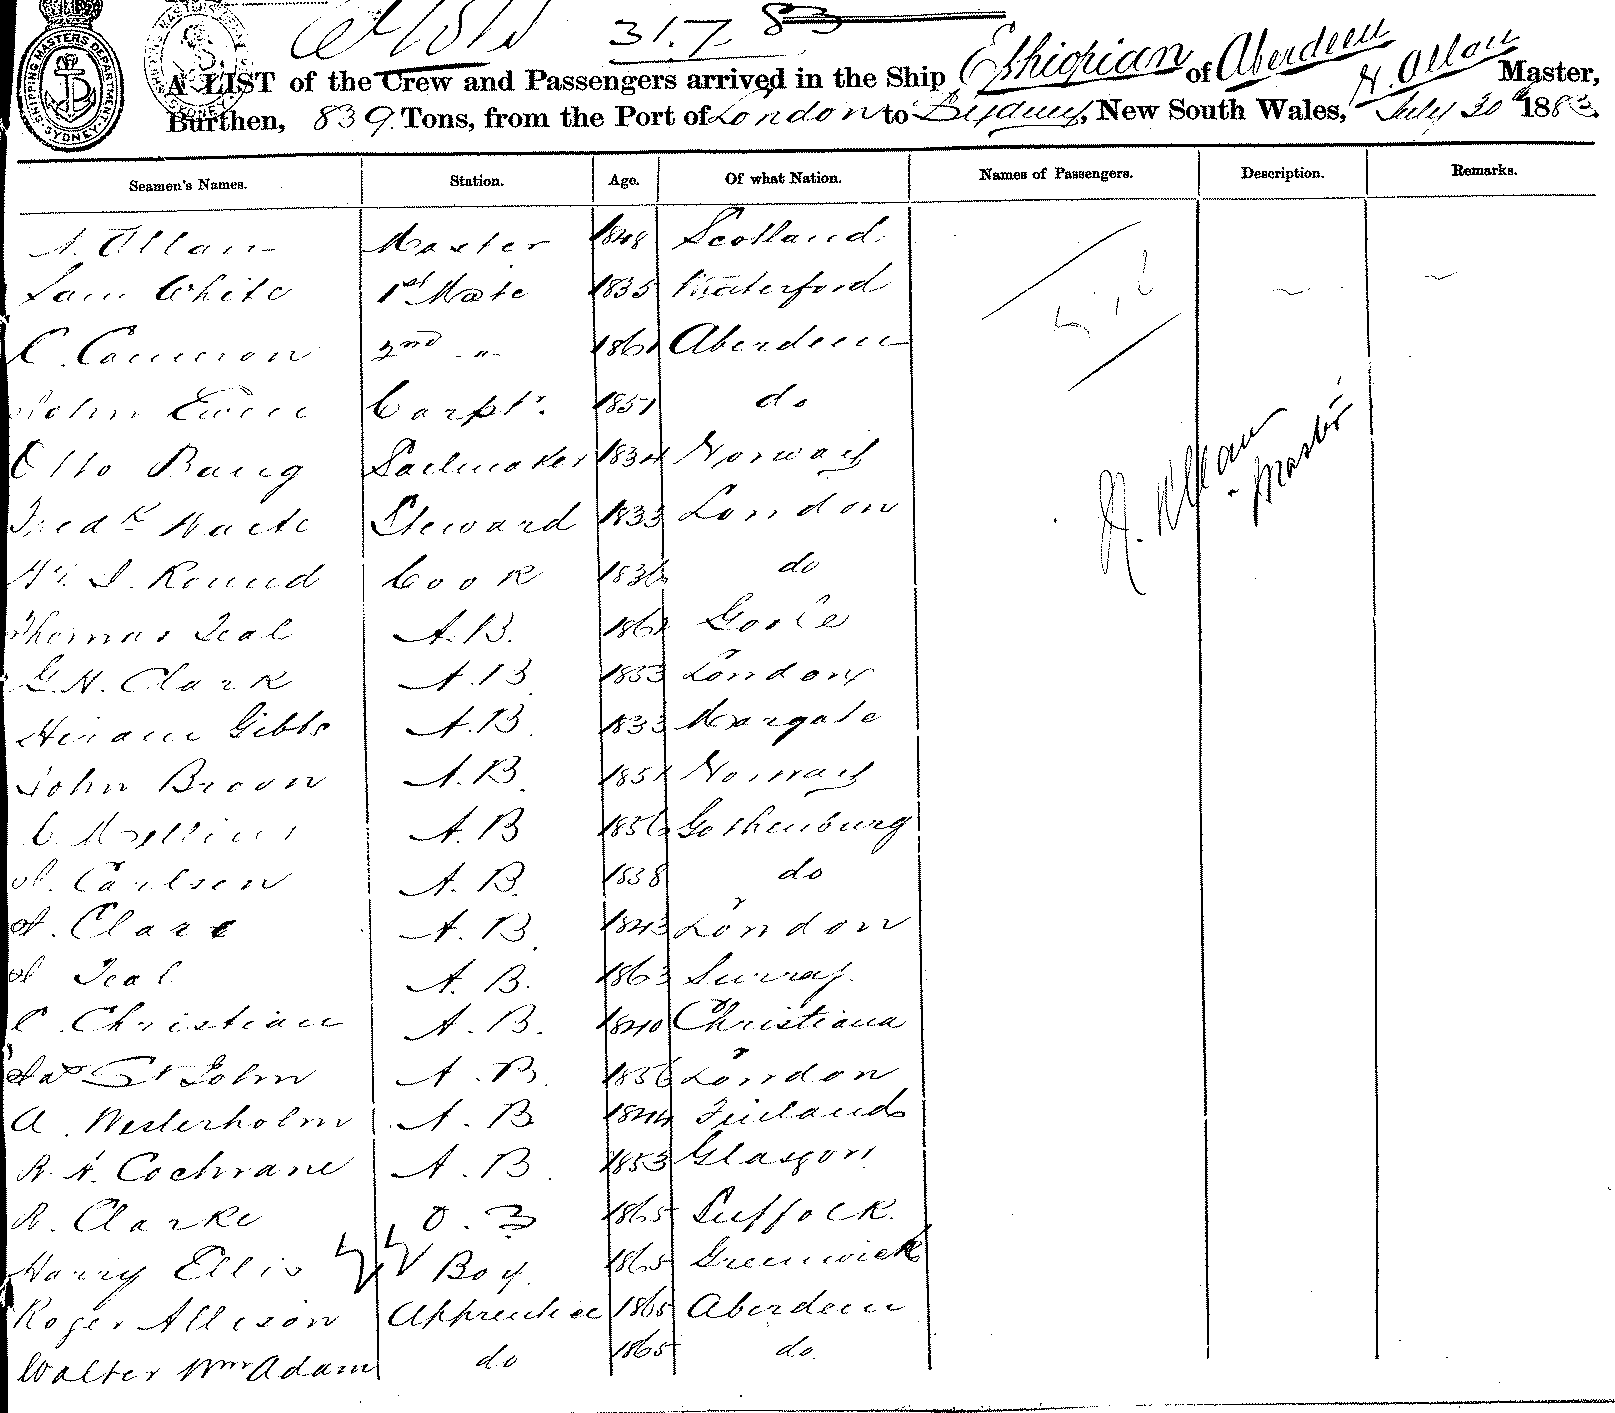 31.7.83
A LIST of the Crew and Passengers arrived in the Ship Ethiopian of Aberdeen A. Allan Master,
Burthen, 839 Tons, from the Port of London to Sydney, New South Wales, July 30th 1883
Seamen's Names. Station. Age. Of what Nation. Names of Passengers. Description. Remarks.
A. Allan Master 1848 Scotland
Sam White 1st Mate 1835 Waterford
C. Cameron 2nd " 1861 Aberdeen
John Ewen Carptr. 1851 do
Otto Baug Sailmaker 1834 Norway
Fredk Waete Steward 1833 London
Wm. I. Round Cook 1836 do
Thomas Teal A.B. 1861 Goole
G. H. Clark A.B 1853 London
Hiram Gibbs A.B. 1833 Margate
John Brown A.B. 1851 Norway
C. A.B 1856 Gothenburg
A. Carlsen A.B. 1838 do
A. Clare A.B. 1843 London
A Teal A.B. 1863 Surray
C. Christian A.B. 1840 Christiana
Jas St John A.B. 1856 London
A. Westerholm A.B 1844 Finland
R. H. Cochrane A.B. 1853 Glasgow
R. Clarke O.S 1865 Suffock
Harry Ellis Boy. 1865 Greenwick
Roger Allison Apprentice 1865 Aberdeen
Walter Wm Adam do 1865 do
A. Allan
Master